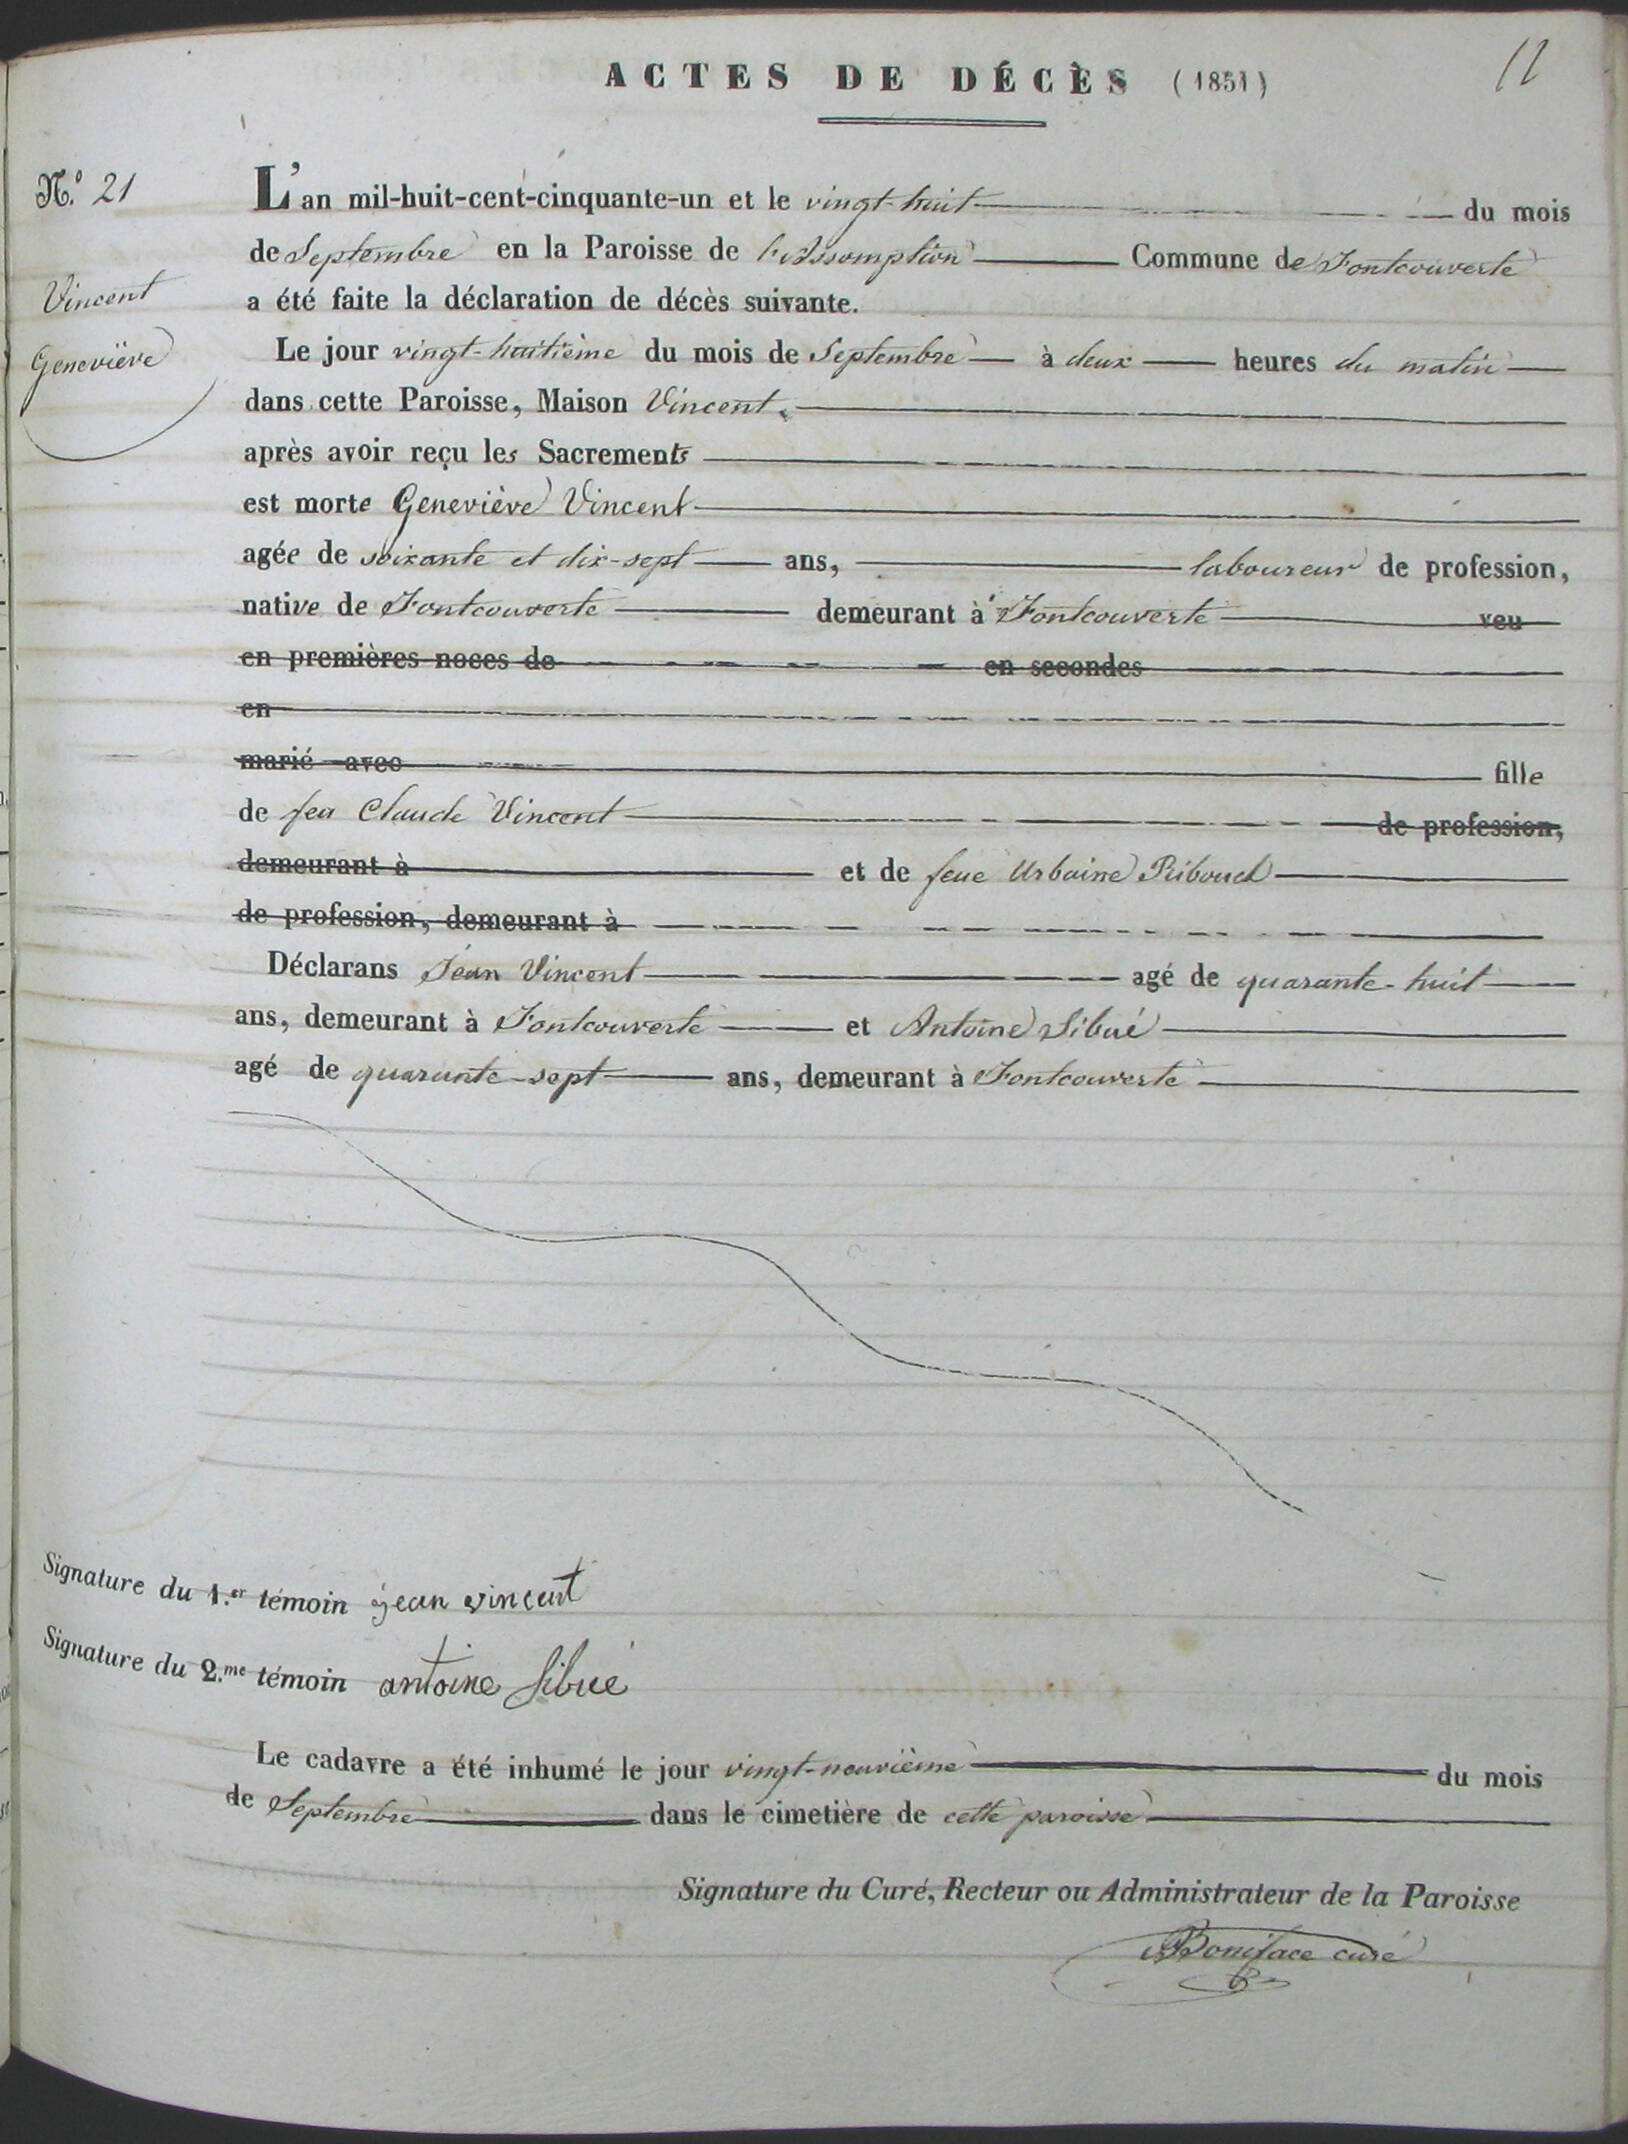 ACTES DE DÉCÈS (1851)
12
N.o 21
L'an mil-huit-cent-cinquante-un et le vingt-huit du mois
de Septembre en la Paroisse de l'Assomption Commune de Fontcouverte
Vincent
Geneviève
a été faite la déclaration de décès suivante.
Le jour vingt-huitième du mois de Septembre à deux heures du matin
dans cette Paroisse, Maison Vincent.
après avoir reçu les Sacrements
est morte Geneviève Vincent
agée de soixante et dix-sept ans, laboureur de profession,
native de Fontcouverte demeurant à Fontcouverte veu
en premières noces de en secondes
en
marié avec fille
de feu Claude Vincent de profession,
demeurant à et de feue Urbaine Ribouel
de profession, demeurant à
Déclarans Jean Vincent agé de quarante-huit
ans, demeurant à Fontcouverte et Antoine Sibué
agé de quarante-sept ans, demeurant à Fontcouverte
Signature du 1.er témoin jean vincent
Signature du 2.me témoin antoine Sibué
Le cadavre a été inhumé le jour vingt-neuvième du mois
de Septembre dans le cimetière de cette paroisse
Signature du Curé, Recteur ou Administrateur de la Paroisse
Boniface curé